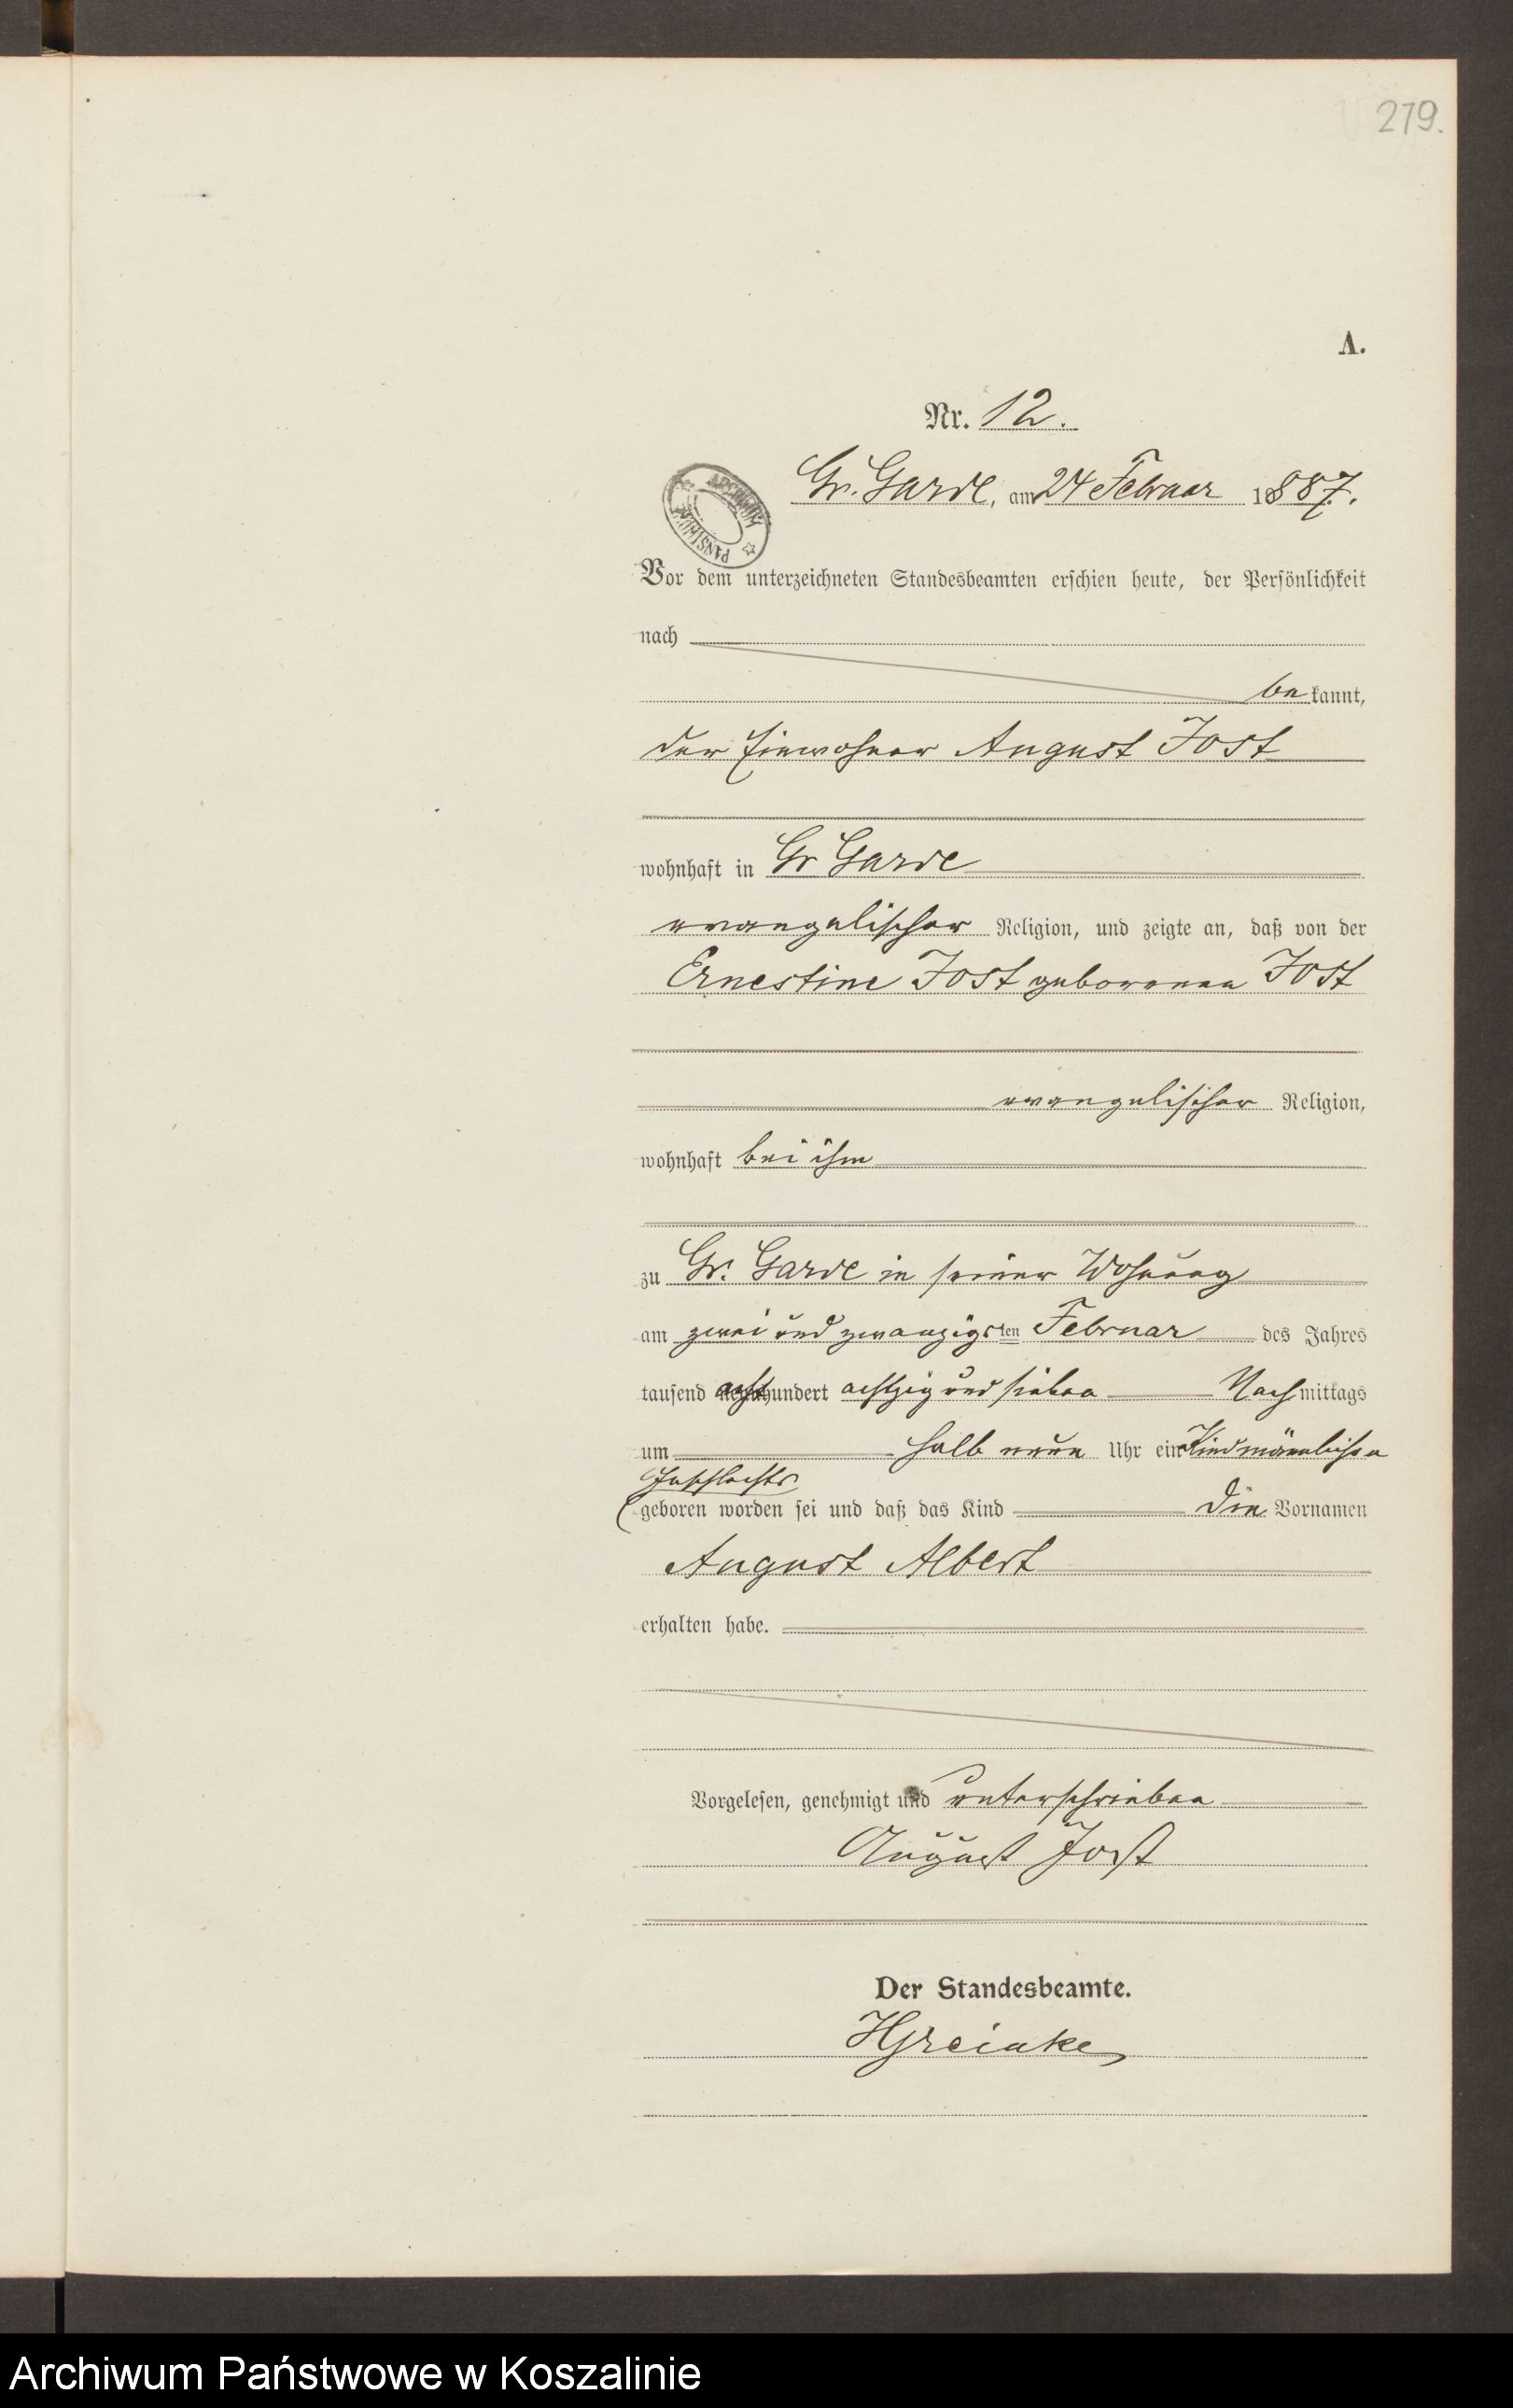 279.
A.
Nr. 12.
Gr. Garde, am 24 Februar 1887.
ARCHIWUM PAŃSTWOWE
Vor dem unterzeichneten Standesbeamten erschien heute, der Persönlichkeit
nach
bekannt,
der Einwohner August Jost
wohnhaft in Gr Garde
evangelischer Religion, und zeigte an, daß von der
Ernestine Jost geborenen Jost
evangelischer Religion,
wohnhaft bei ihm
zu Gr. Garde in seiner Wohnung
am zwei und zwanzigsten Februar des Jahres
tausend achthundert achtzig und sieben Nachmittags
um halb neun Uhr ein Kind männlichen
Geschlechts
geboren worden sei und daß das Kind die Vornamen
August Albert
erhalten habe.
Vorgelesen, genehmigt und unterschrieben
August Jost
Der Standesbeamte.
Archiwum Państwowe w Koszalinie